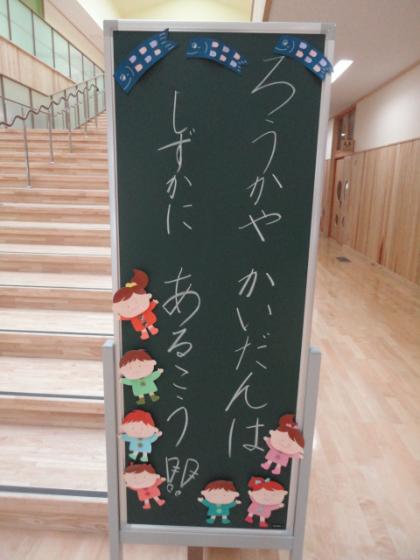 ろうかや かいだんは
しずかに あるこう!!